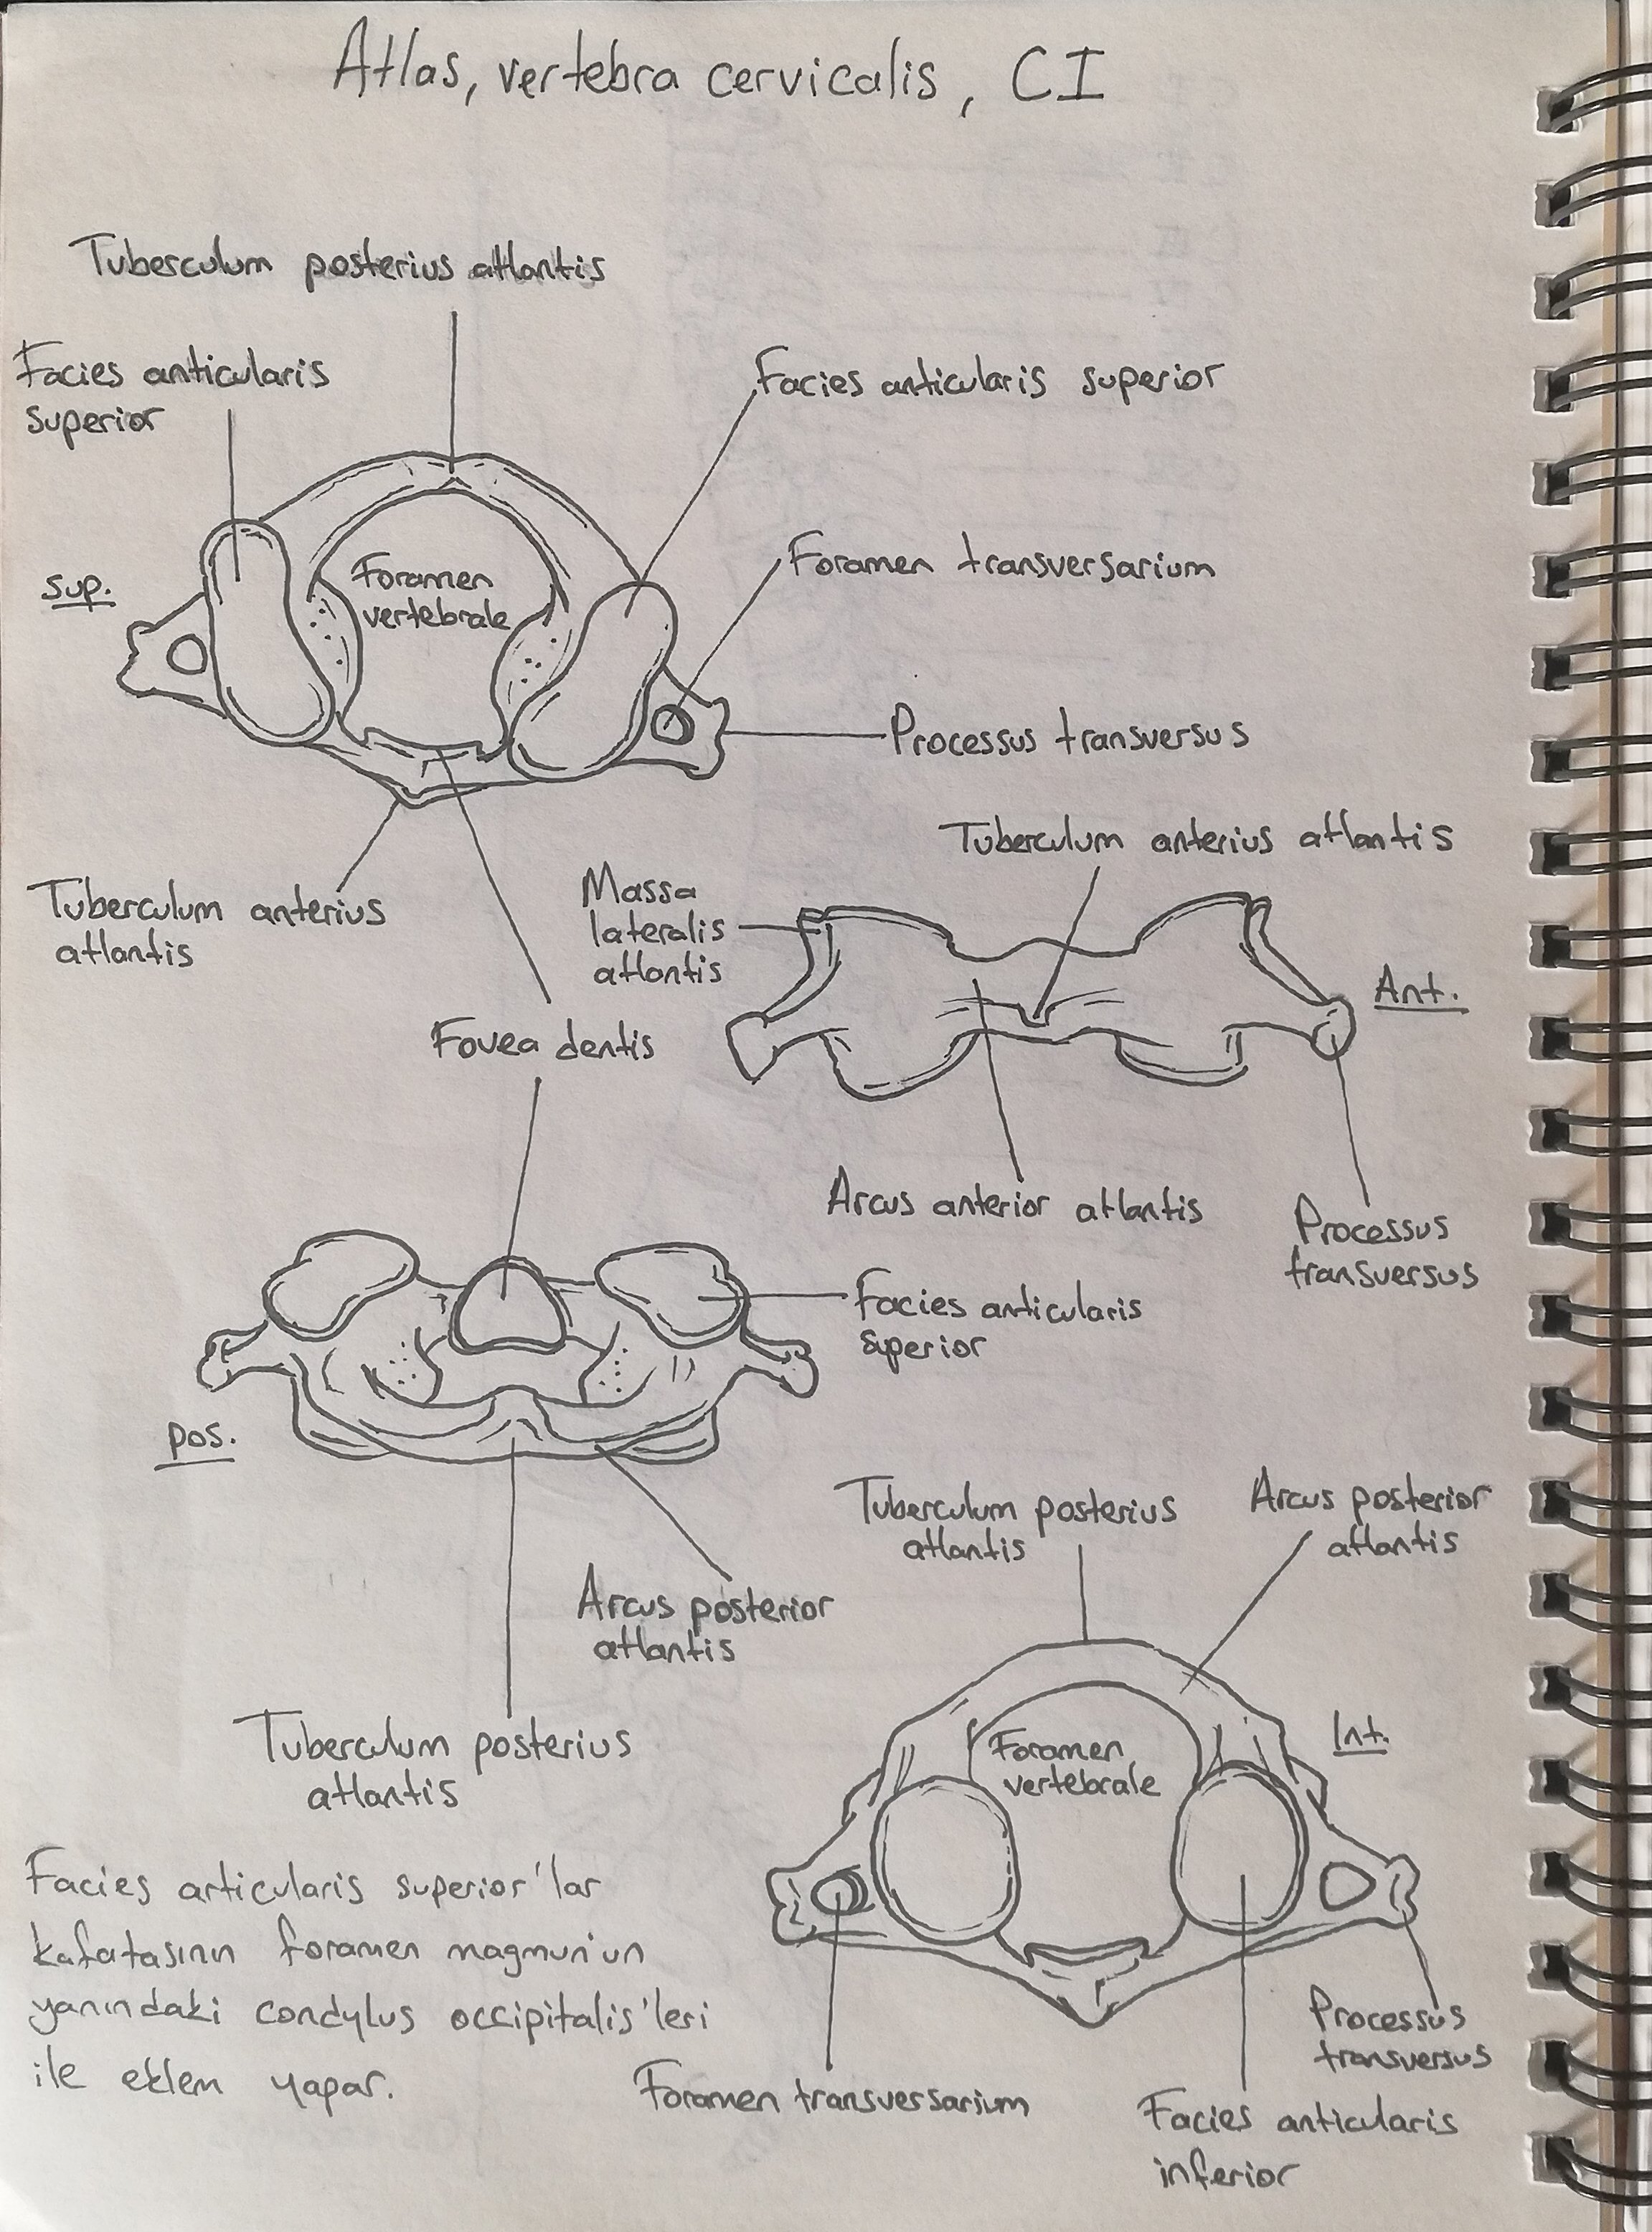 Atlas, vertebra cervicalis, CI
Tuberculum posterius atlantis
Facies anticularis
superior
Facies anticularis superior
sup.
Foramen
vertebrale
Foramen transversarium
Processus transversus
Tuberculum anterius
atlantis
Fovea dentis
Massa
lateralis
atlantis
Tuberculum anterius atlantis
Ant.
Arcus anterior atlantis
Processus
transversus
Facies anticularis
superior
pos.
Arcus posterior
atlantis
Tuberculum posterius
atlantis
Tuberculum posterius
atlantis
Arcus posterior
atlantis
Int.
Foramen
vertebrale
Processus
transversus
Foramen transversarium
Facies anticularis
inferior
Facies articularis superior'lar
kafatasının foramen magmun'un
yanındaki condylus occipitalis'leri
ile eklem yapar.